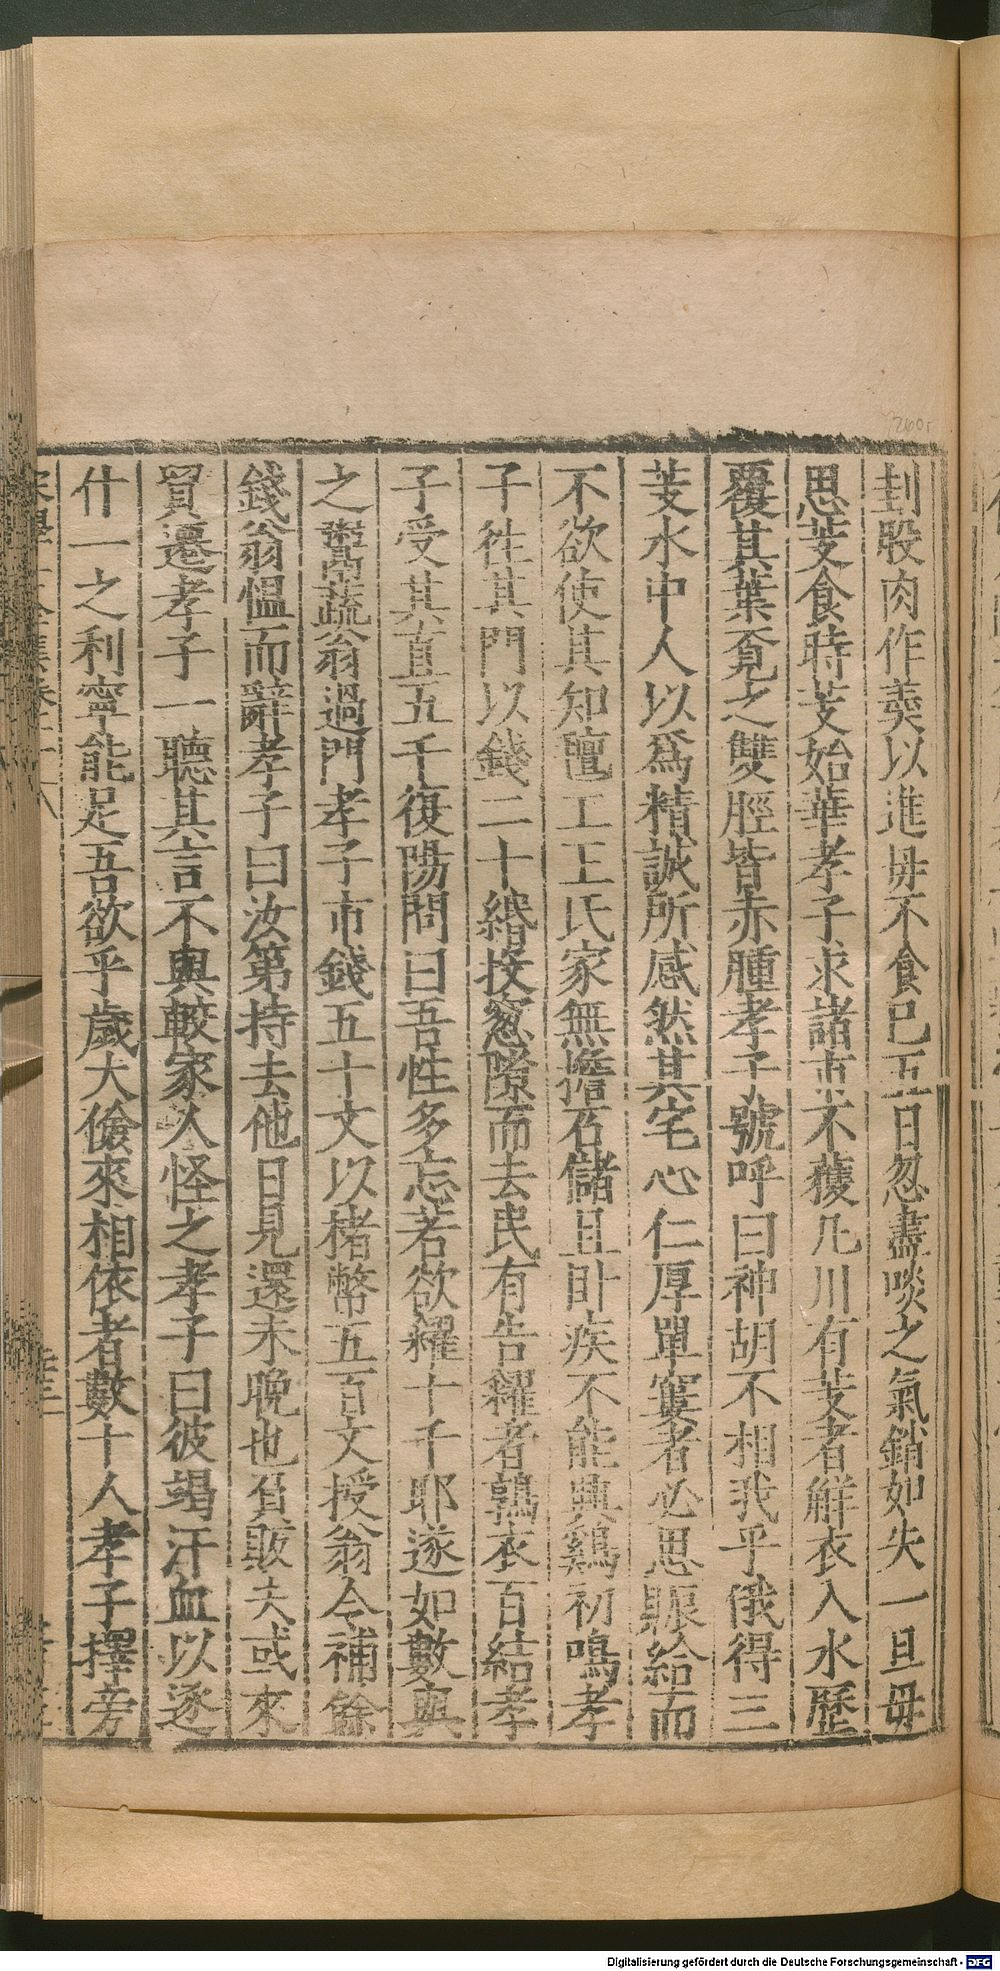 刲股肉作羮以進毋不食已五日忽盡啖之氣銷如失一旦毋
思芰食時芰始華孝子求諸市不獲凡川有芰者觧衣入水歷
覆其葉覔之雙脛皆赤腫孝子號呼曰神胡不相我乎俄得三
芰水中人以爲精誠所感然其宅心仁厚單窶者必思賑給而
不欲使其知氊工王氏家無擔石儲且卧疾不能興鷄初鳴孝
子徃其門以錢二十緡投窓隙而去民有告糴者鶉衣百結孝
子受其直五千復陽問曰吾性多忘若欲糴十千耶遂如數與
之鬻蔬翁過門孝子市錢五十文以楮幣五百文授翁令補餘
錢翁愠而辭孝子曰汝第持去他日見還未晩也負販夫或來
貿遷孝子一聽其言不與較家人怪之孝子曰彼竭汗血以逐
什一之利寧能足吾欲乎歲大儉來相依者數十人孝子擇旁
260r
Digitalisierung gefördert durch die Deutsche Forschungsgemeinschaft - DFG